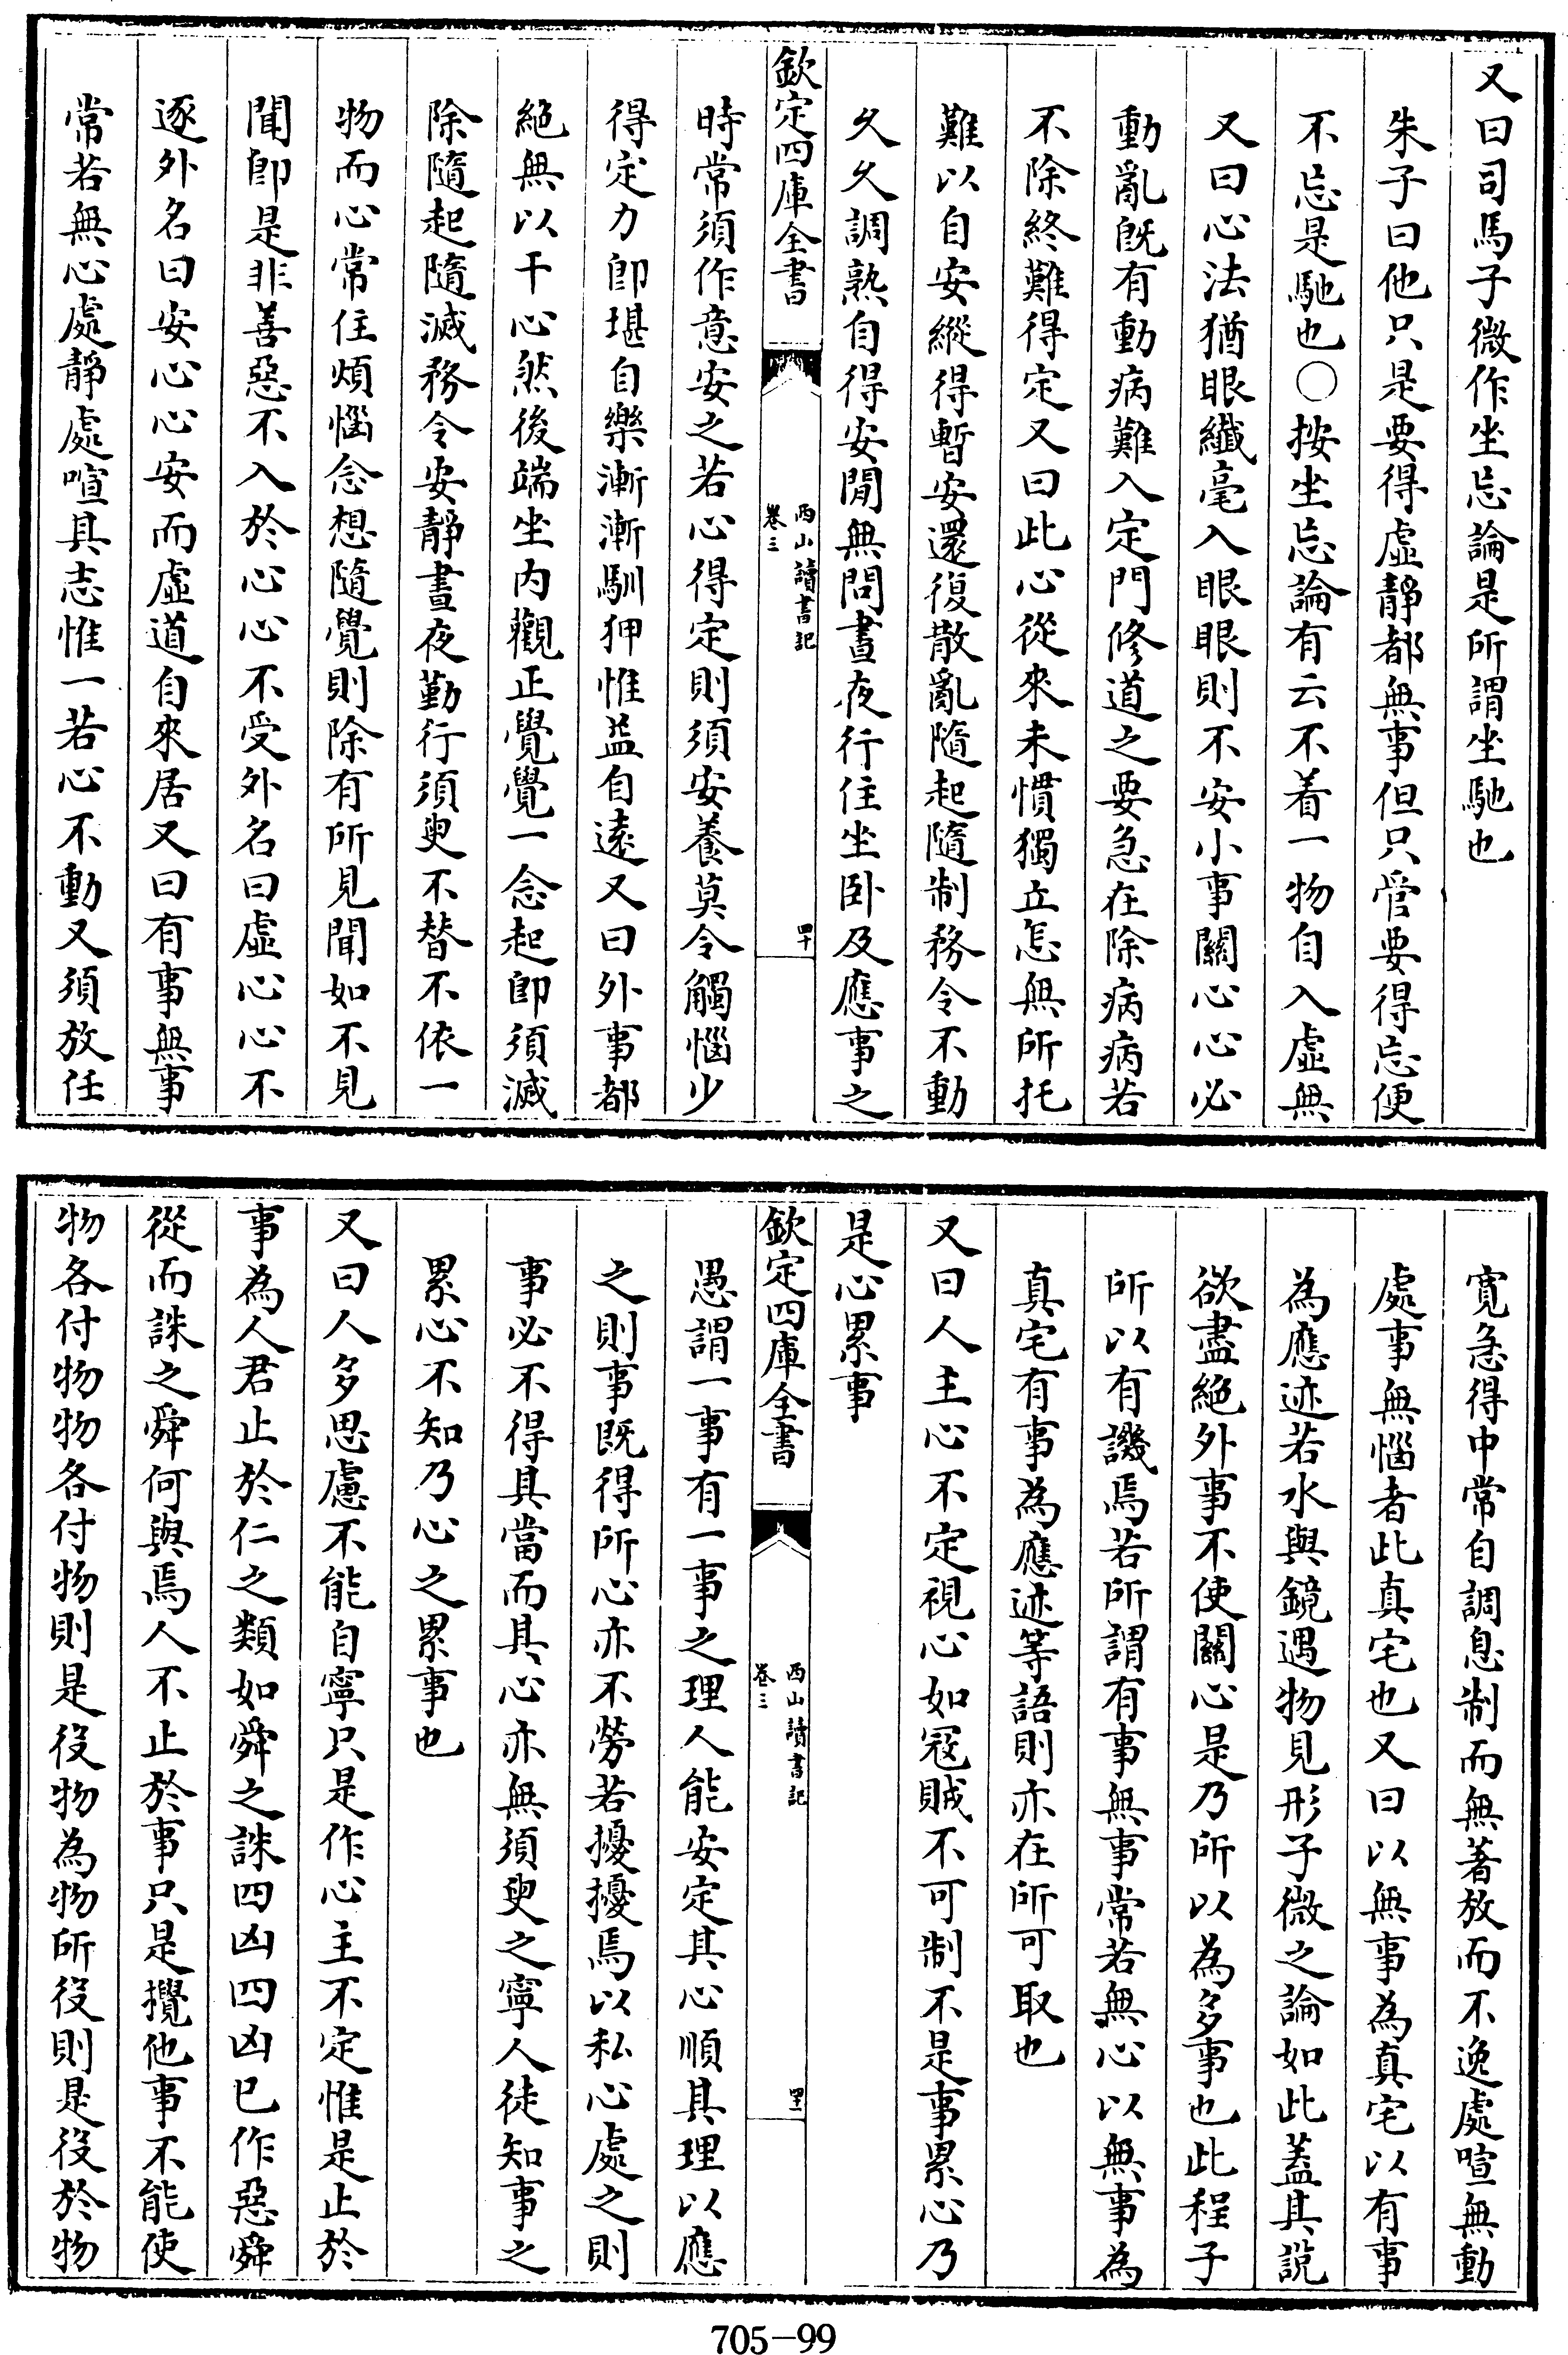 又曰司馬子微作坐忘論是所謂坐馳也
朱子曰他只是要得虛靜都無事但只管要得忘便
不忘是馳也○按坐忘論有云不着一物自入虛無
又曰心法猶眼纖毫入眼眼則不安小事關心心必
動亂既有動病難入定門修道之要急在除病病若
不除終難得定又曰此心從來未慣獨立怎無所托
難以自安縱得暫安還復散亂隨起隨制務令不動
久久調熟自得安閒無問晝夜行住坐卧及應事之
欽定四庫全書
西山讀書記
卷三
四十
時常須作意安之若心得定則須安養莫令觸惱少
得定力即堪自樂漸漸馴狎惟益自遠又曰外事都
絕無以干心然後端坐内觀正覺覺一念起即須滅
除隨起隨滅務令安靜晝夜勤行須臾不替不依一
物而心常住煩惱念想隨覺則除有所見聞如不見
聞即是非善惡不入於心心不受外名曰虛心心不
逐外名曰安心心安而虛道自來居又曰有事無事
常若無心處靜處喧其志惟一若心不動又須放任
寛急得中常自調息制而無著放而不逸處喧無動
處事無惱者此真宅也又曰以無事為真宅以有事
為應迹若水與鏡遇物見形子微之論如此蓋其說
欲盡絕外事不使關心是乃所以為多事也此程子
所以有譏焉若所謂有事無事常若無心以無事為
真宅有事為應迹等語則亦在所可取也
又曰人主心不定視心如冦賊不可制不是事累心乃
是心累事
欽定四庫全書
西山讀書記
卷三
四十一
愚謂一事有一事之理人能安定其心順其理以應
之則事既得所心亦不勞若擾擾焉以私心處之則
事必不得其當而其心亦無須臾之寧人徒知事之
累心不知乃心之累事也
又曰人多思慮不能自寧只是作心主不定惟是止於
事為人君止於仁之類如舜之誅四凶四凶已作惡舜
從而誅之舜何與焉人不止於事只是攪他事不能使
物各付物物各付物則是役物為物所役則是役於物
705-99